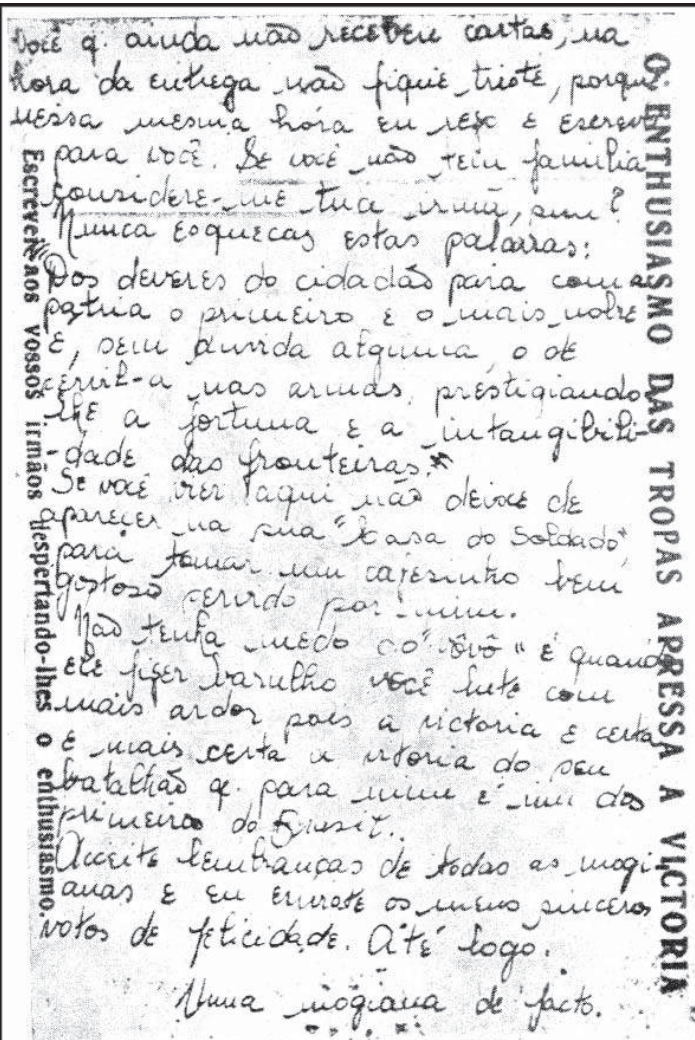 Você q. ainda não recebeu cartas, na
hora da entrega não fique triste, porque
nessa mesma hora eu rezo e escrevo
para você. Se você não tem familia
considere-me tua irmã, sim?
Nunca esqueças estas palavras:
"Dos deveres do cidadão para com a
patria o primeiro e o mais nobre
é, sem duvida alguma, o de
servil-a nas armas, prestigiando
lhe a fortuna e a intangibili-
-dade das fronteiras."
Se você vier aqui não deixe de
aparecer na sua "Casa do Soldado",
para tomar um cafesinho bem
gostoso servido por mim.
Não tenha medo do "vôvô" e quando
ele fizer barulho você lute com
mais ardor pois a victoria é certa
e mais certa a vitoria do seu
batalhão q. para mim é um dos
primeiros do Brasil.
Acceite lembranças de todas as mogi
anas e eu envio-te os meus sinceros
votos de felicidade. Até logo.
Uma mogiana de facto.
Escrevei aos vossos irmãos despertando-lhes o enthusiasmo.
O ENTHUSIASMO DAS TROPAS APRESSA A VICTORIA